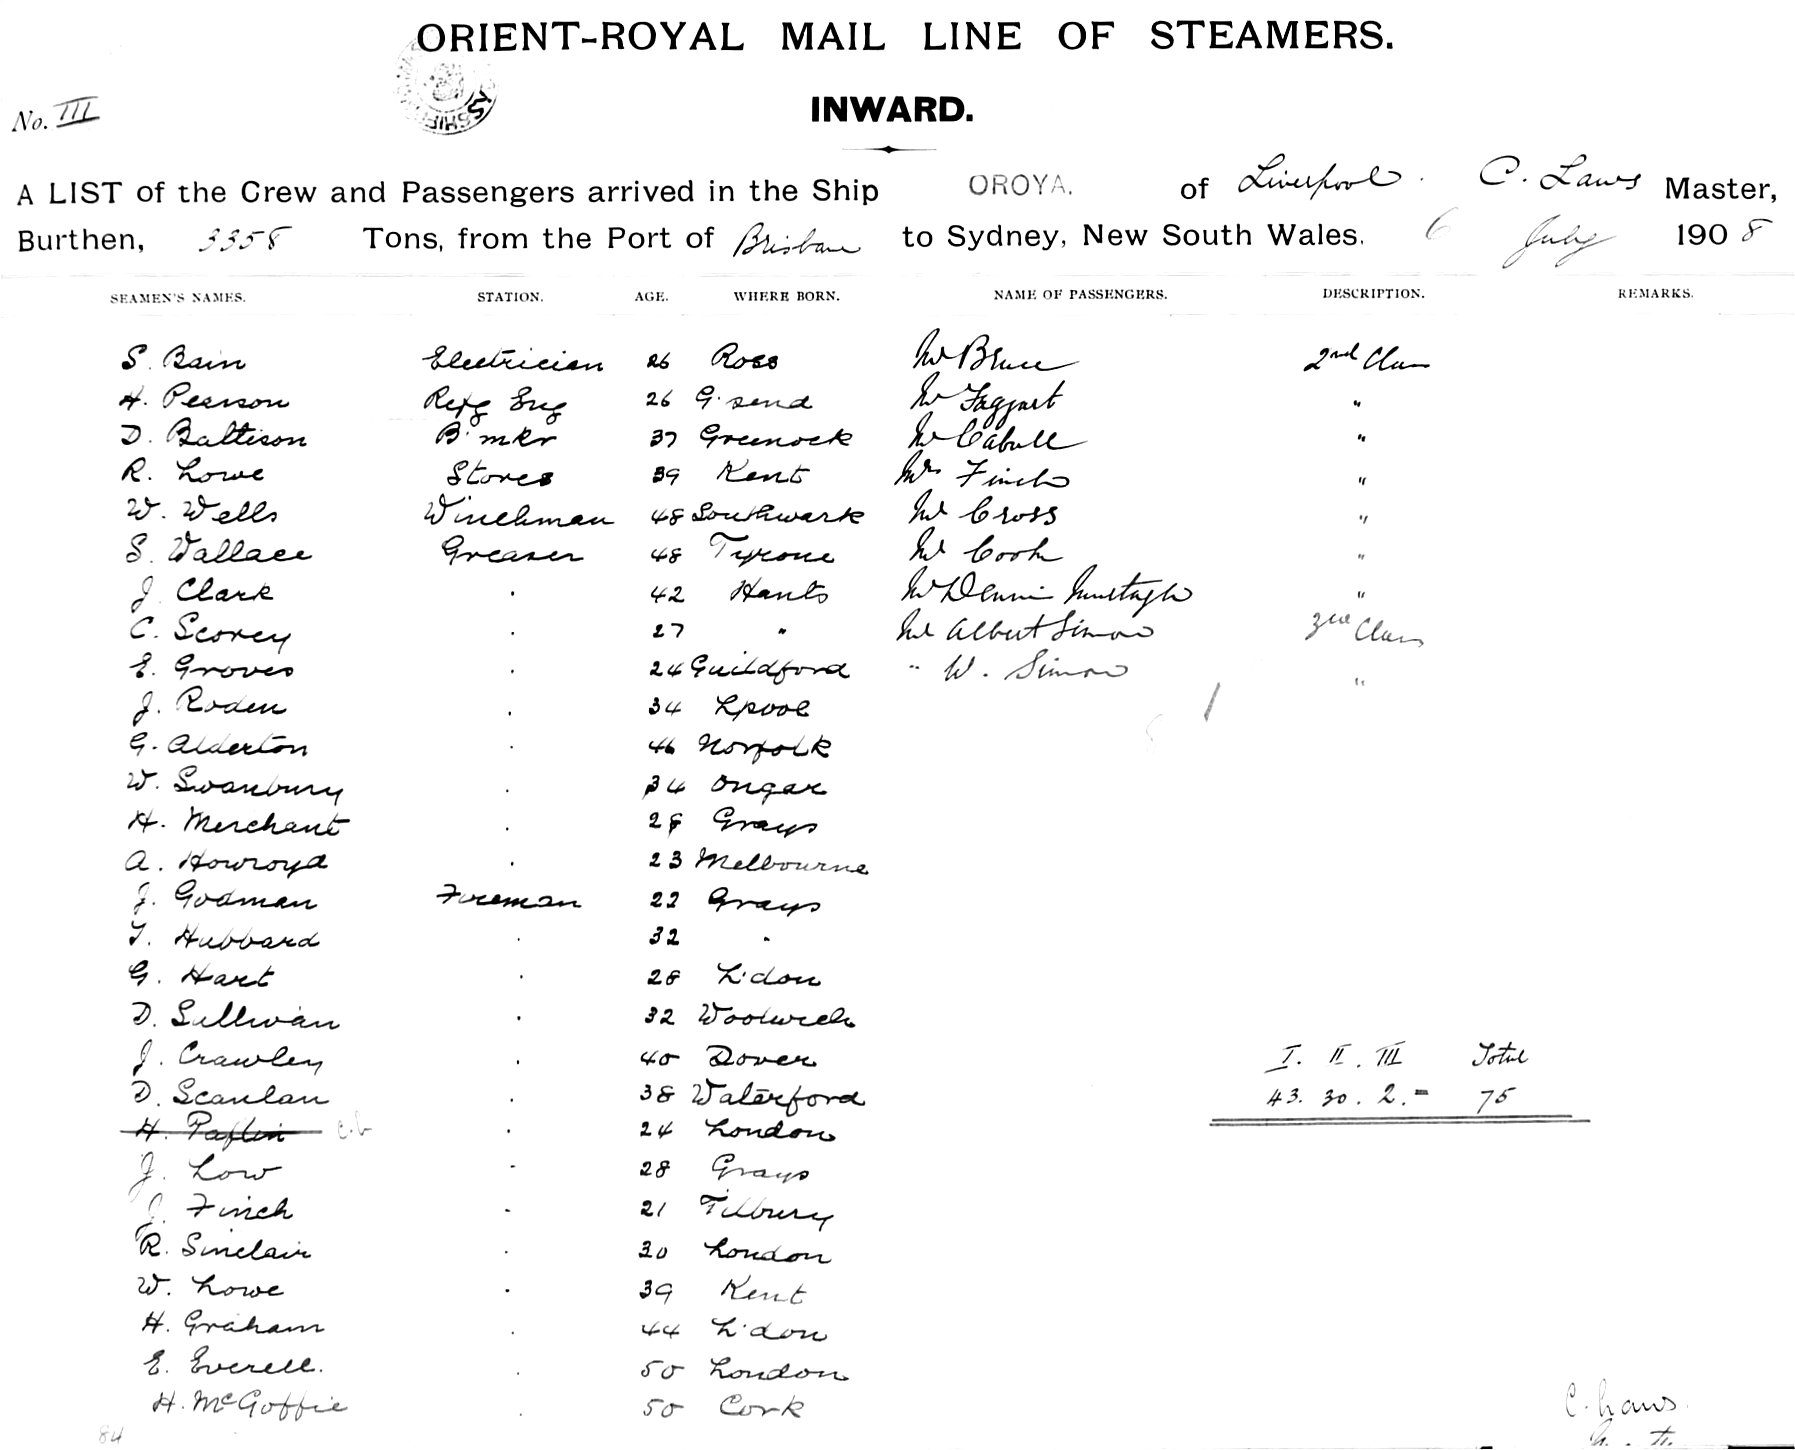 ORIENT-ROYAL MAIL LINE OF STEAMERS.
No. III
INWARD.
A LIST of the Crew and Passengers arrived in the Ship OROYA. of Liverpool. C. Laws Master,
Burthen, 3358 Tons, from the Port of Brisbane to Sydney, New South Wales. 6 July 1908
SEAMEN'S NAMES. STATION. AGE. WHERE BORN. NAME OF PASSENGERS. DESCRIPTION. REMARKS.
S. Bain Electrician 26 Ross Mr Bruce 2nd Class
H. Pearson Refg Eng 26 G'send Mr Taggart "
D. Battison B'mkr 37 Greenock Mr Cabell "
R. Lowe Stores 39 Kent Mrs Finch "
W. Wells Winchman 48 Southwark Mr Cross "
S. Wallace Greaser 48 Tyrone Mr Cook "
J. Clark . 42 Hants Mr Dennis Murtagh "
C. Scorey . 27 " Mr Albert Simon 3rd Class
E. Groves 24 Guildford " W. Simon "
J. Roden . 34 Lpool
G. Alderton . 46 Norfolk
W. Swanbury . 34 Ongar
H. Merchant . 28 Grays
A. Howroyd . 23 Melbourne
J. Godman Fireman 22 Grays
T. Hubbard . 32 .
G. Hart . 28 L'don
D. Sullivan . 32 Woolwich
J. Crawley . 40 Dover I. II. III Total
D. Scanlan . 38 Waterford 43. 30. 2.- 75
H. Paflin . 24 London
J. Low - 28 Grays
J. Finch - 21 Tilbury
R. Sinclair . 30 London
W. Lowe . 39 Kent
H. Graham . 44 L'don
E. Everell. . 50 London
H. McGoffie . 50 Cork
C. Laws
84